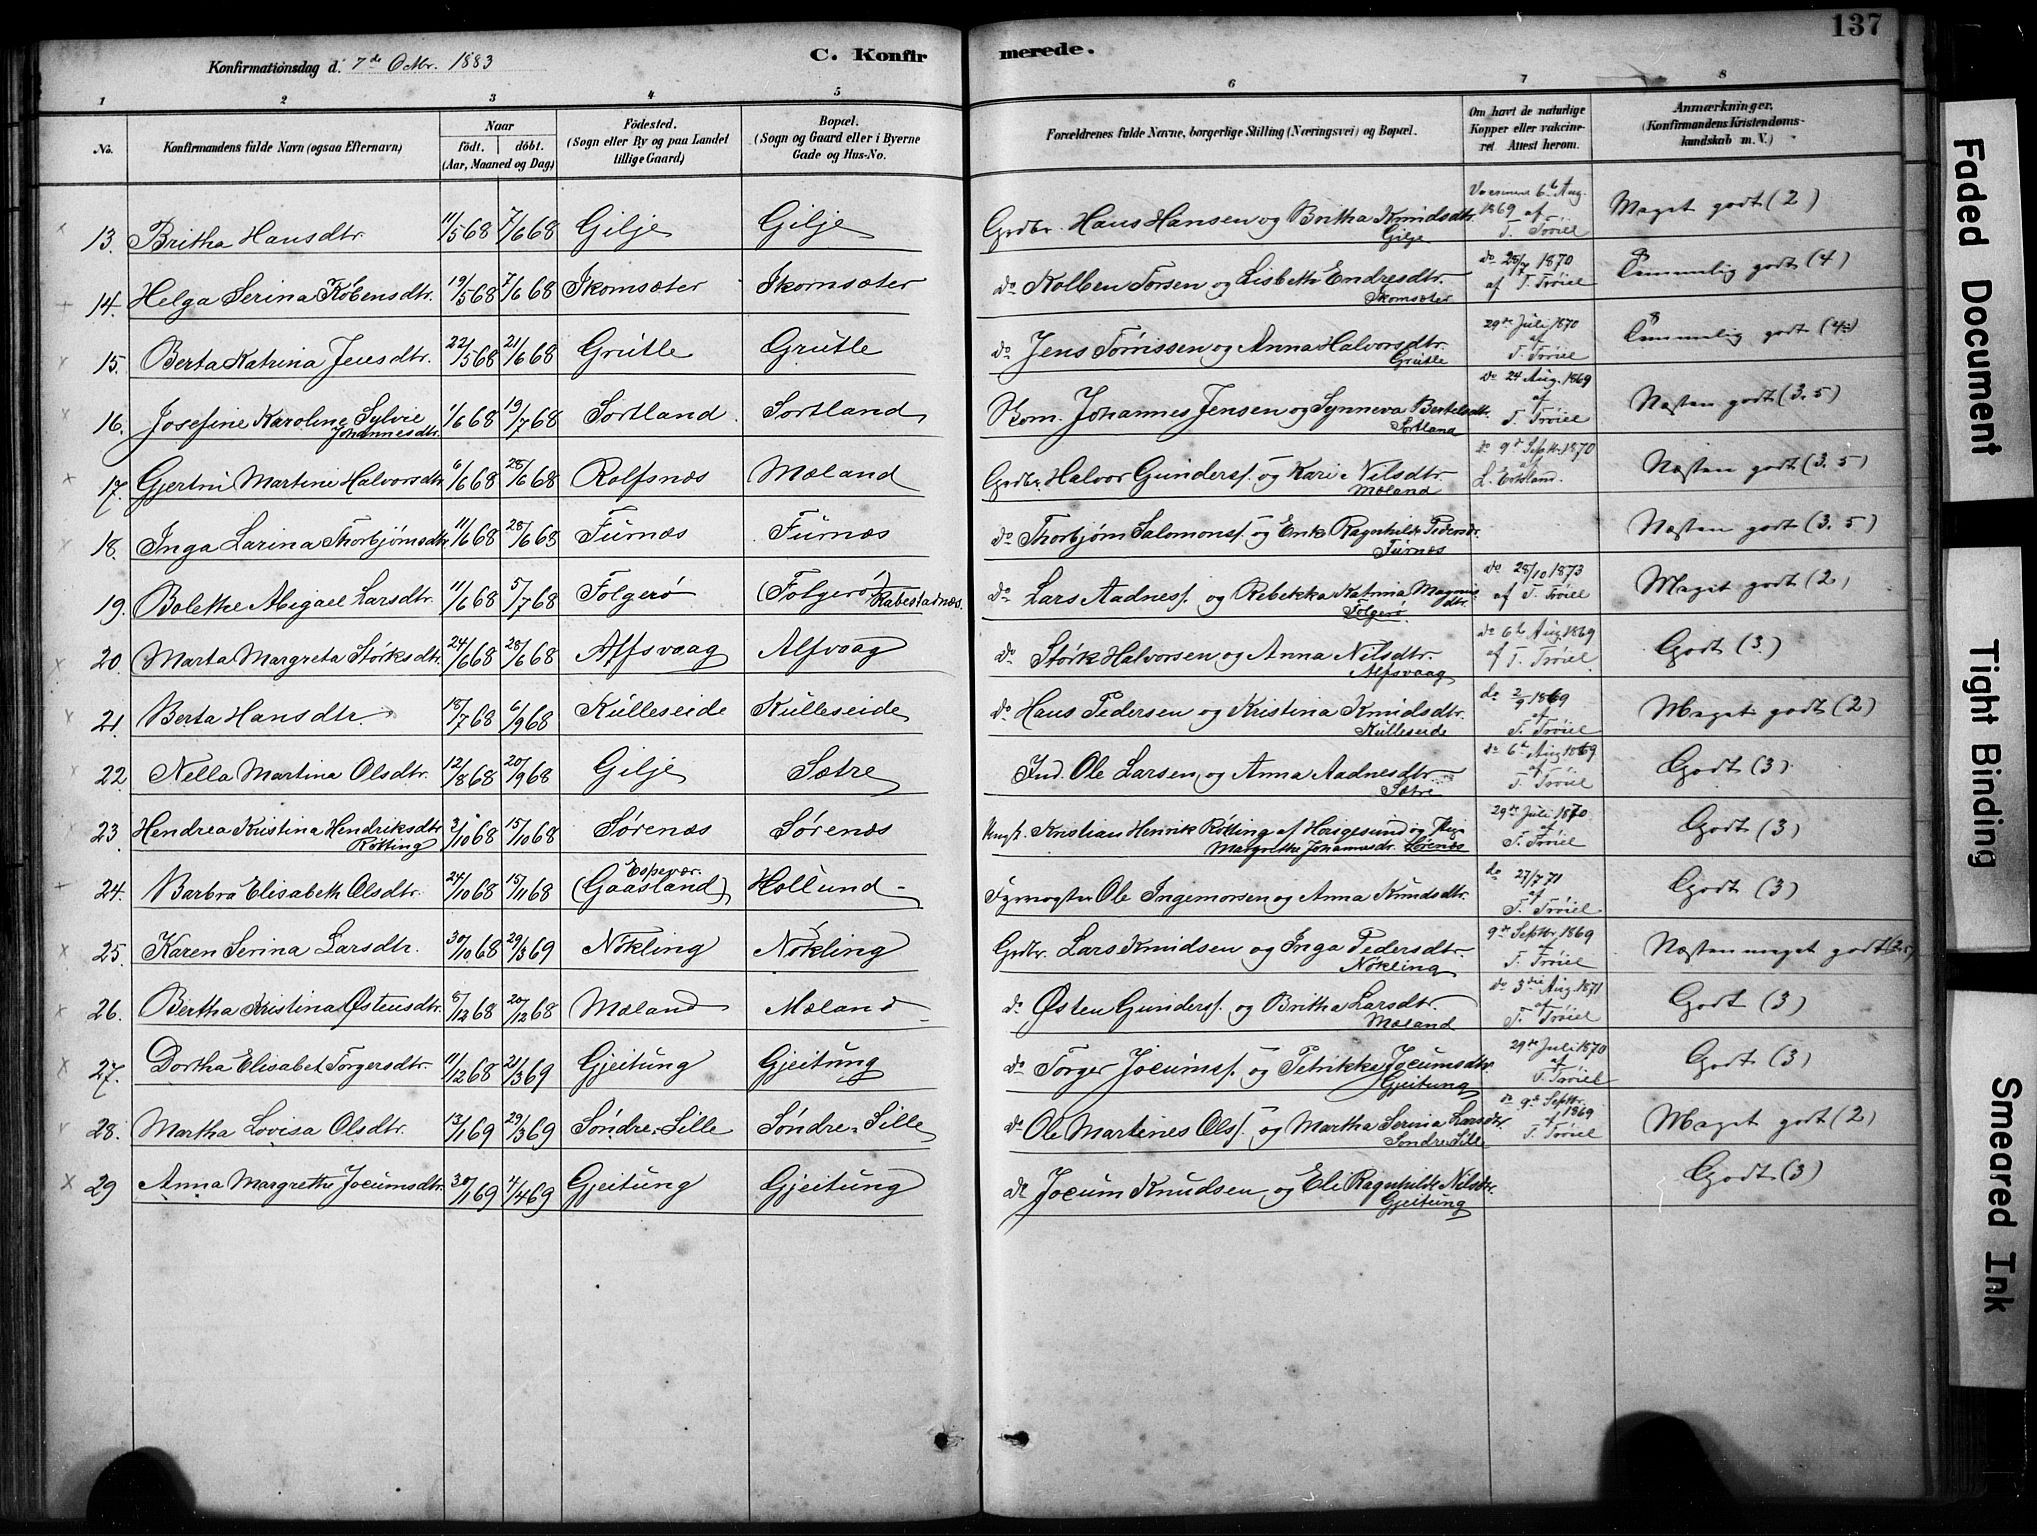 137
Konfirmationsdag d. 7de Octbr. 1883
C. Konfirmerede.
1 2 3 4 5 6 7 8
No.
Konfirmandens fulde Navn (ogsaa Efternavn)
Naar
født. døbt.
(Aar, Maaned og Dag)
Fødested.
(Sogn eller By og paa Landet
tillige Gaard)
Bopæl.
(Sogn og Gaard eller i Byerne
Gade og Hus-No.
Forældrenes fulde Navne, borgerlige Stilling (Næringsvei) og Bopæl.
Om havt de naturlige
Kopper eller vakcineret
Attest herom.
Anmærkninger.
(Konfirmandens Kristendomskundskab
m. V.)
13. Britha Hansdtr. 11/5 68 7/6 68 Gilje Gilje Grdbr. Hans Hansen og Britha Knudsdtr. Gilje 6te Aug. 1869 af T. Trøiel Maget godt (2)
14. Helga Serina Kolbensdtr. 19/5 68 7/6 68 Skomsæter Skomsæter do Kolben Torsen og Lisbeth Endresdtr. Skomsæter do 28/7 1870 af T. Trøiel Temmelig godt (4)
15. Berta Katrina Jensdtr. 22/5 68 21/6 68 Grutle Grutle do Jens Tørrissen og Anna Halvorsdtr. Grutle 29de Juli 1870 af T. Trøiel Temmelig godt (4)
16. Josefine Karoline Sylvie Johannesdtr. 1/6 68 19/7 68 Sortland Sortland Kom. Johannes Jensen og Synneva Bertelsdt. Sortland do 24 Aug. 1869 af T. Trøiel Næsten godt (3.5)
17. Gjertru Martine Halvorsdtr 6/6 68 28/6 68 Rolfsnæs Mæland Grdbr. Halvor Gundersf. og Kari Nilsdtr. Mæland do 9de Septbr. 1870 af L. Eckland. Næsten godt (3.5)
18. Inga Larina Thorbjørnsdtr 11/6 68 28/6 68 Furnæs Furnæs do Thorbjørn Salomonsf. og Enke Ragnhilde Pedersdr. Furnæs Næsten godt (3.5)
19. Bolette Abigael Larsdtr. 11/6 68 5/7 68 Folgerø (Folgerø) Rabestadnæs. do Lars Aadnesf. og Rebekka Katrina Magnusdtr. Folgerø. do 28/10 1873 af T. Trøiel Maget godt (2)
20. Marta Margreta Størksdtr. 24/6 68 28/6 68 Alfsvaag Alfvaag do Størk Halvorsen og Anna Nilsdtr. Alfsvaag do 6te Aug 1869 af T. Trøiel. Godt (3)
21. Berta Hansdtr. 18/7 68 6/9 68 Kulleseide Kulleseide do Hans Pedersen og Kristina Knudsdtr. Kulleseide do 2/9 1869 af T. Trøiel Maget godt (2)
22 Nella Martina Olsdtr. 12/8 68 20/9 68 Gilje Sætre Ind. Ole Larsen og Anna Aadnesdtr Sætre do 6te Aug 1869 af T. Trøiel Godt (3)
23. Hendrea Kristina Hendriksdtr Rötting 3/10 68 15/10 68 Sørenæs Sørenæs Ungk. Kristian Henrik Rötting af Haugesund og Pige Margrethe Johannesdr. Sørenæs 29de Juli 1870 af T. Trøiel Godt (3)
24. Barbro Elisabeth Olsdtr. 24/10 68 15/11 68 Espevær. (Gaasland) Hollund Fyrvogter Ole Ingemorsen og Anna Knudsdtr. do 27/7 71 af T. Trøiel Godt (3)
25. Karen Serina Larsdtr. 30/10 68 29/3 69 Nökling Nökling Grdbr. Lars Knudsen og Inga Pedersdtr. Nökling 9de Septbr. 1869 af T. Trøiel Næsten maget godt (2.5)
26. Bertha Kristina Østensdtr. 8/12 68 20/12 68 Mæland Mæland do Østen Gundersf. og Britha Larsdtr. Mæland do 3die Aug. 1871 af T. Trøiel Godt (3)
27. Dortha Elisabet Torgersdtr. 11/12 68 21/3 69 Gjeitung Gjeitung do Torger Jocumsf. og Petrikke Jocumsdtr. Gjeitung 29de Juli 1870 af T. Trøiel Godt (3)
28. Martha Lovisa Olsdtr. 13/1 69 29/3 69 Søndre Lille Søndre Lille do Ole Martines Olsf. og Martha Serina Larsdtr. Søndre Lille do 9de Septbr. af 1869 T. Trøiel Maget godt (2)
29 Anna Margrethe Jocumsdtr. 30/1 69 4/4 69 Gjeitung Gjeitung do Jocum Knudsen og Eli Ragnhilde Nilsdtr. Gjeitung Godt (3)
Faded Document
Tight Binding
Smeared Ink